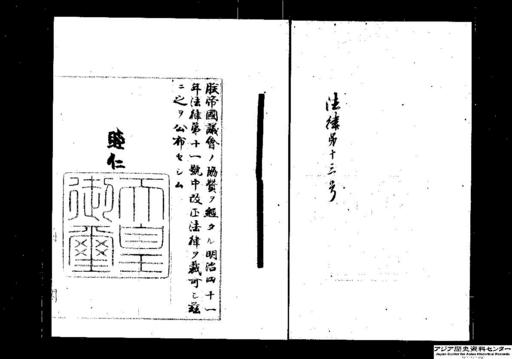 法律第十三号
朕帝國議會ノ協賛ヲ經タル明治四十一
年法律第十一號中改正法律ヲ裁可シ茲
ニ之ヲ公布セシム
睦仁
天皇
御璽
アジア歴史資料センター
Japan Center for Asian Historical Records